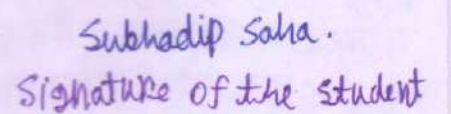 Subhadip Saha.
Signature of the student